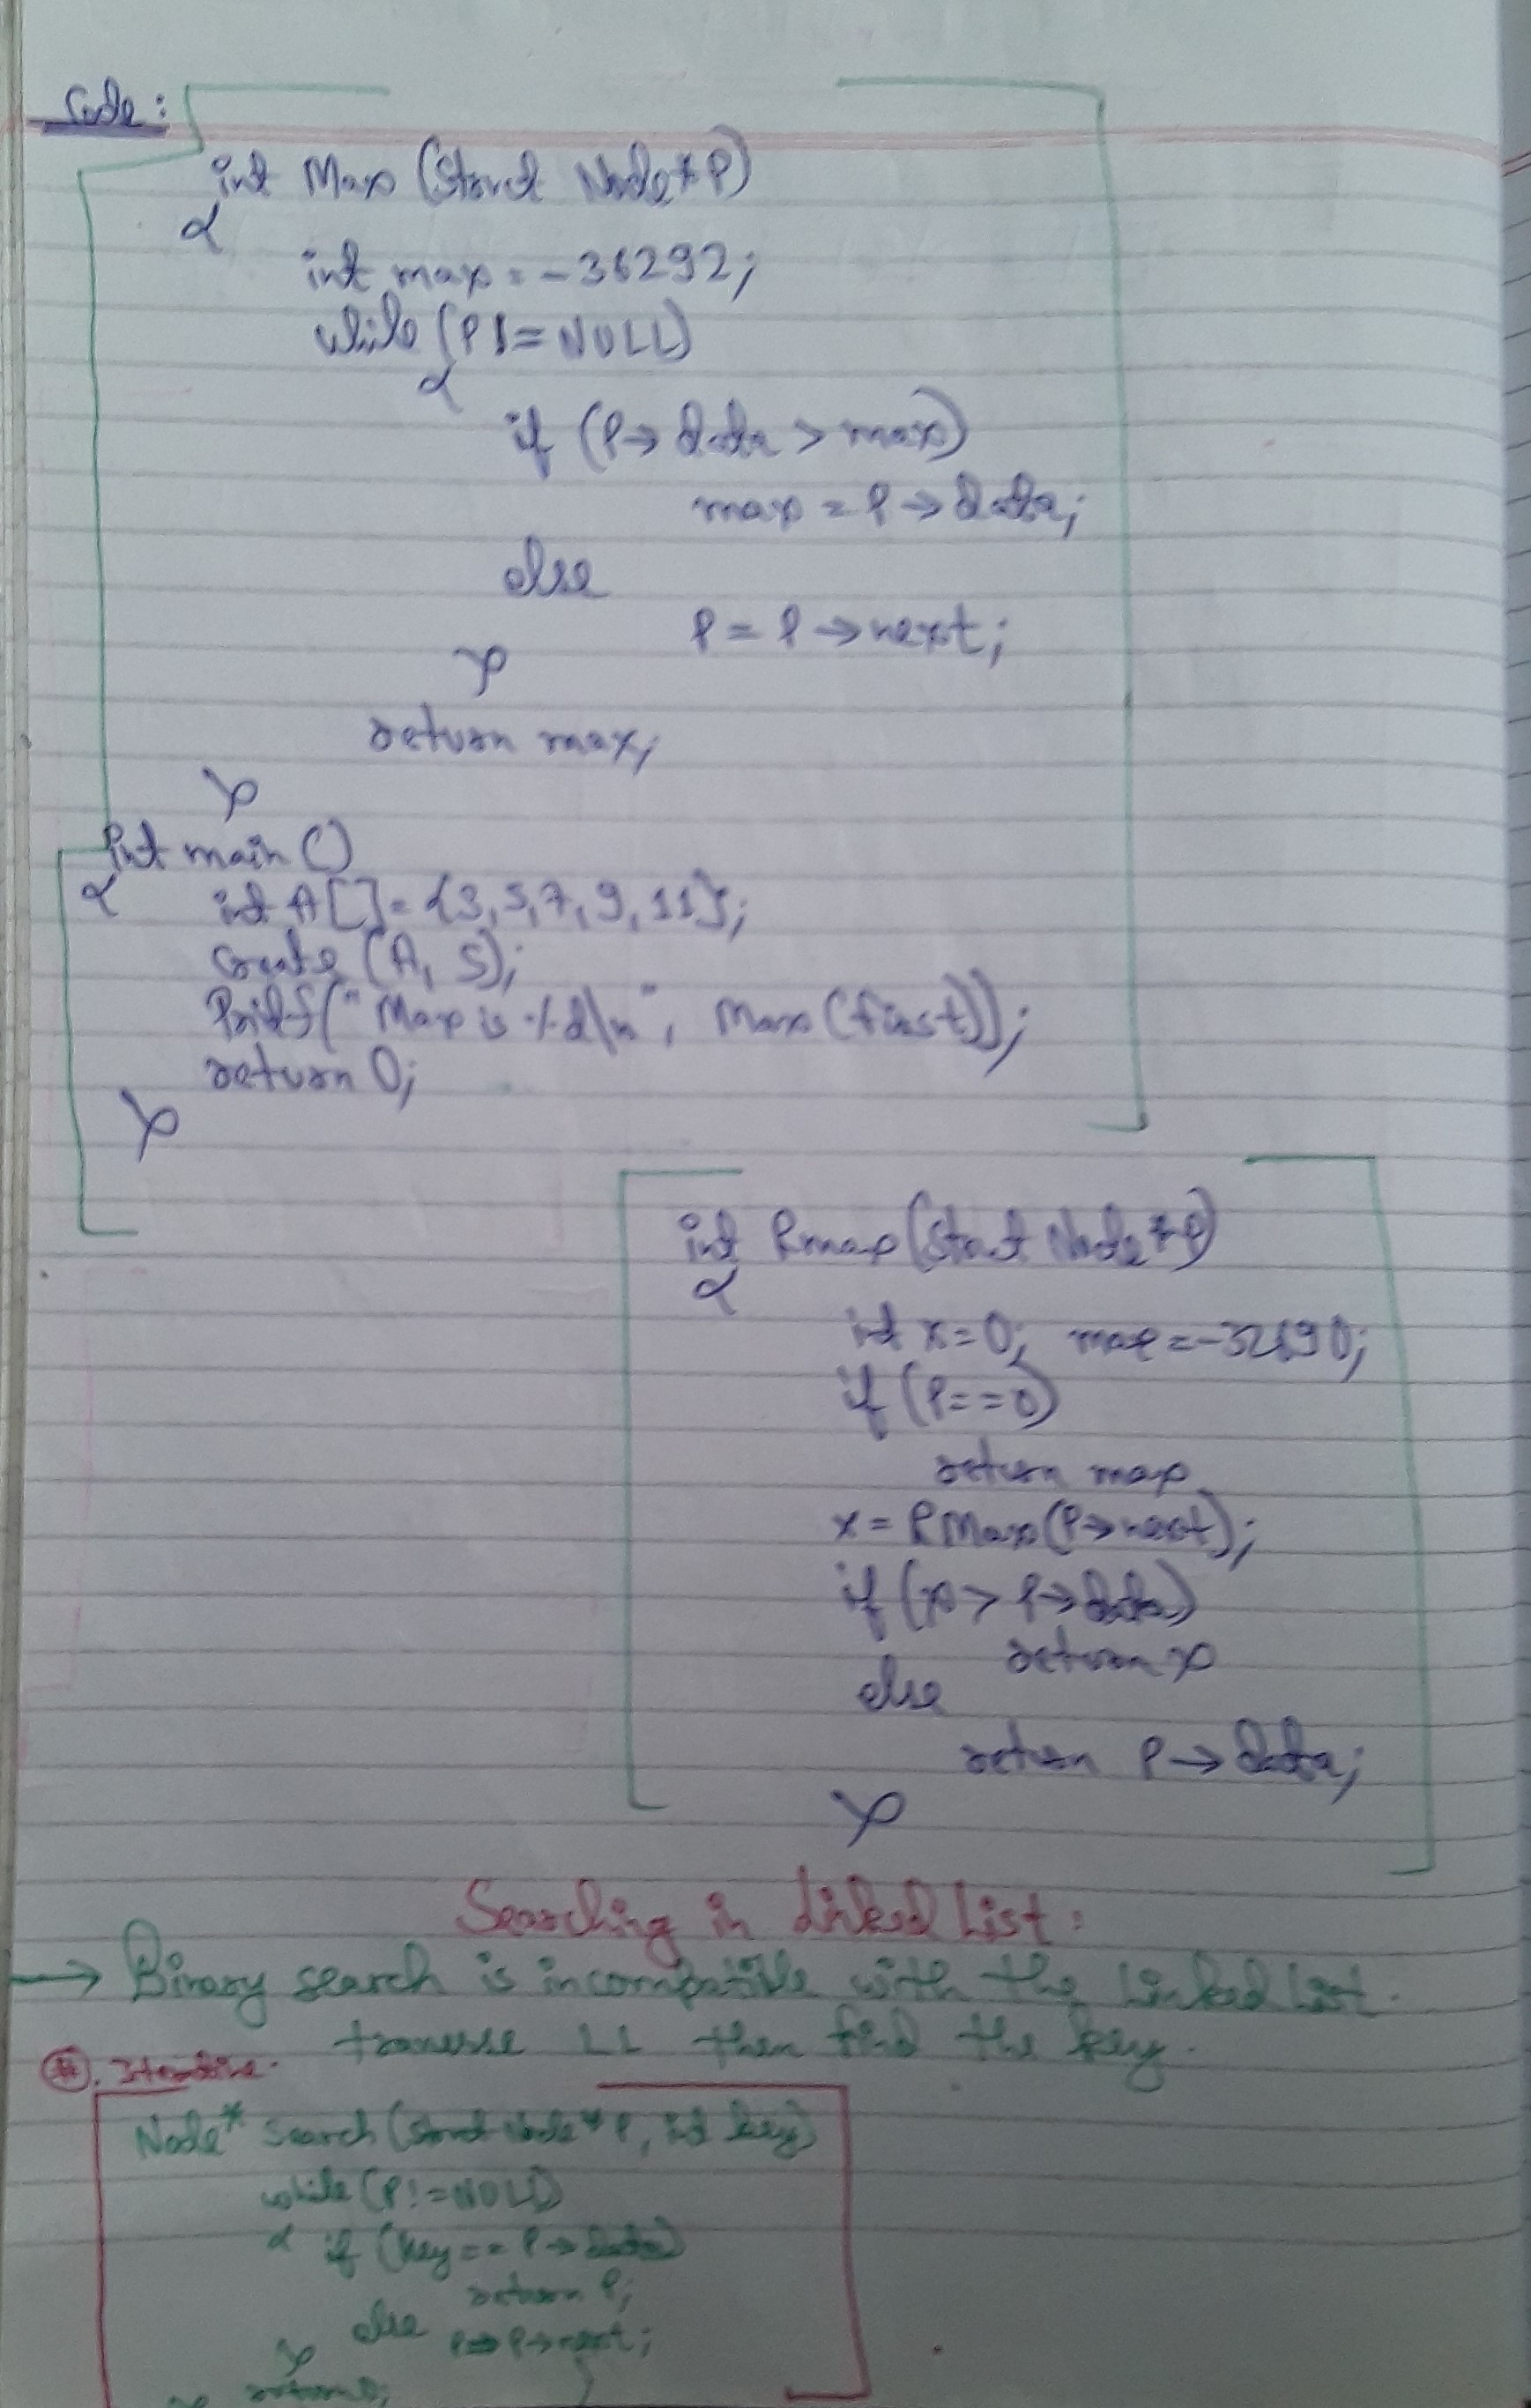 Code:
int Max (Struct Node * P)
{
int max = -36292;
while (P != NULL)
{
if (P → data > max)
max = P → data;
else
P = P → next;
}
return max;
}
int main ()
{
int A[] = {3, 5, 7, 9, 11};
Create (A, 5);
Printf (" Max is %d\n", Max (first));
return 0;
}
int Rmax (Struct Node * P)
{
int x = 0; max = -32690;
if (P == 0)
return max
x = RMax (P → next);
if (x > P → data)
return x
else
return P → data;
}
Searching in Linked List :
→ Binary search is incompatible with the Linked List.
traverse LL then find the key.
Iterative.
Node* Search (Struct Node * P, int key)
while (P != NULL)
{ if (key == P → data)
return P;
else P = P → next;
}